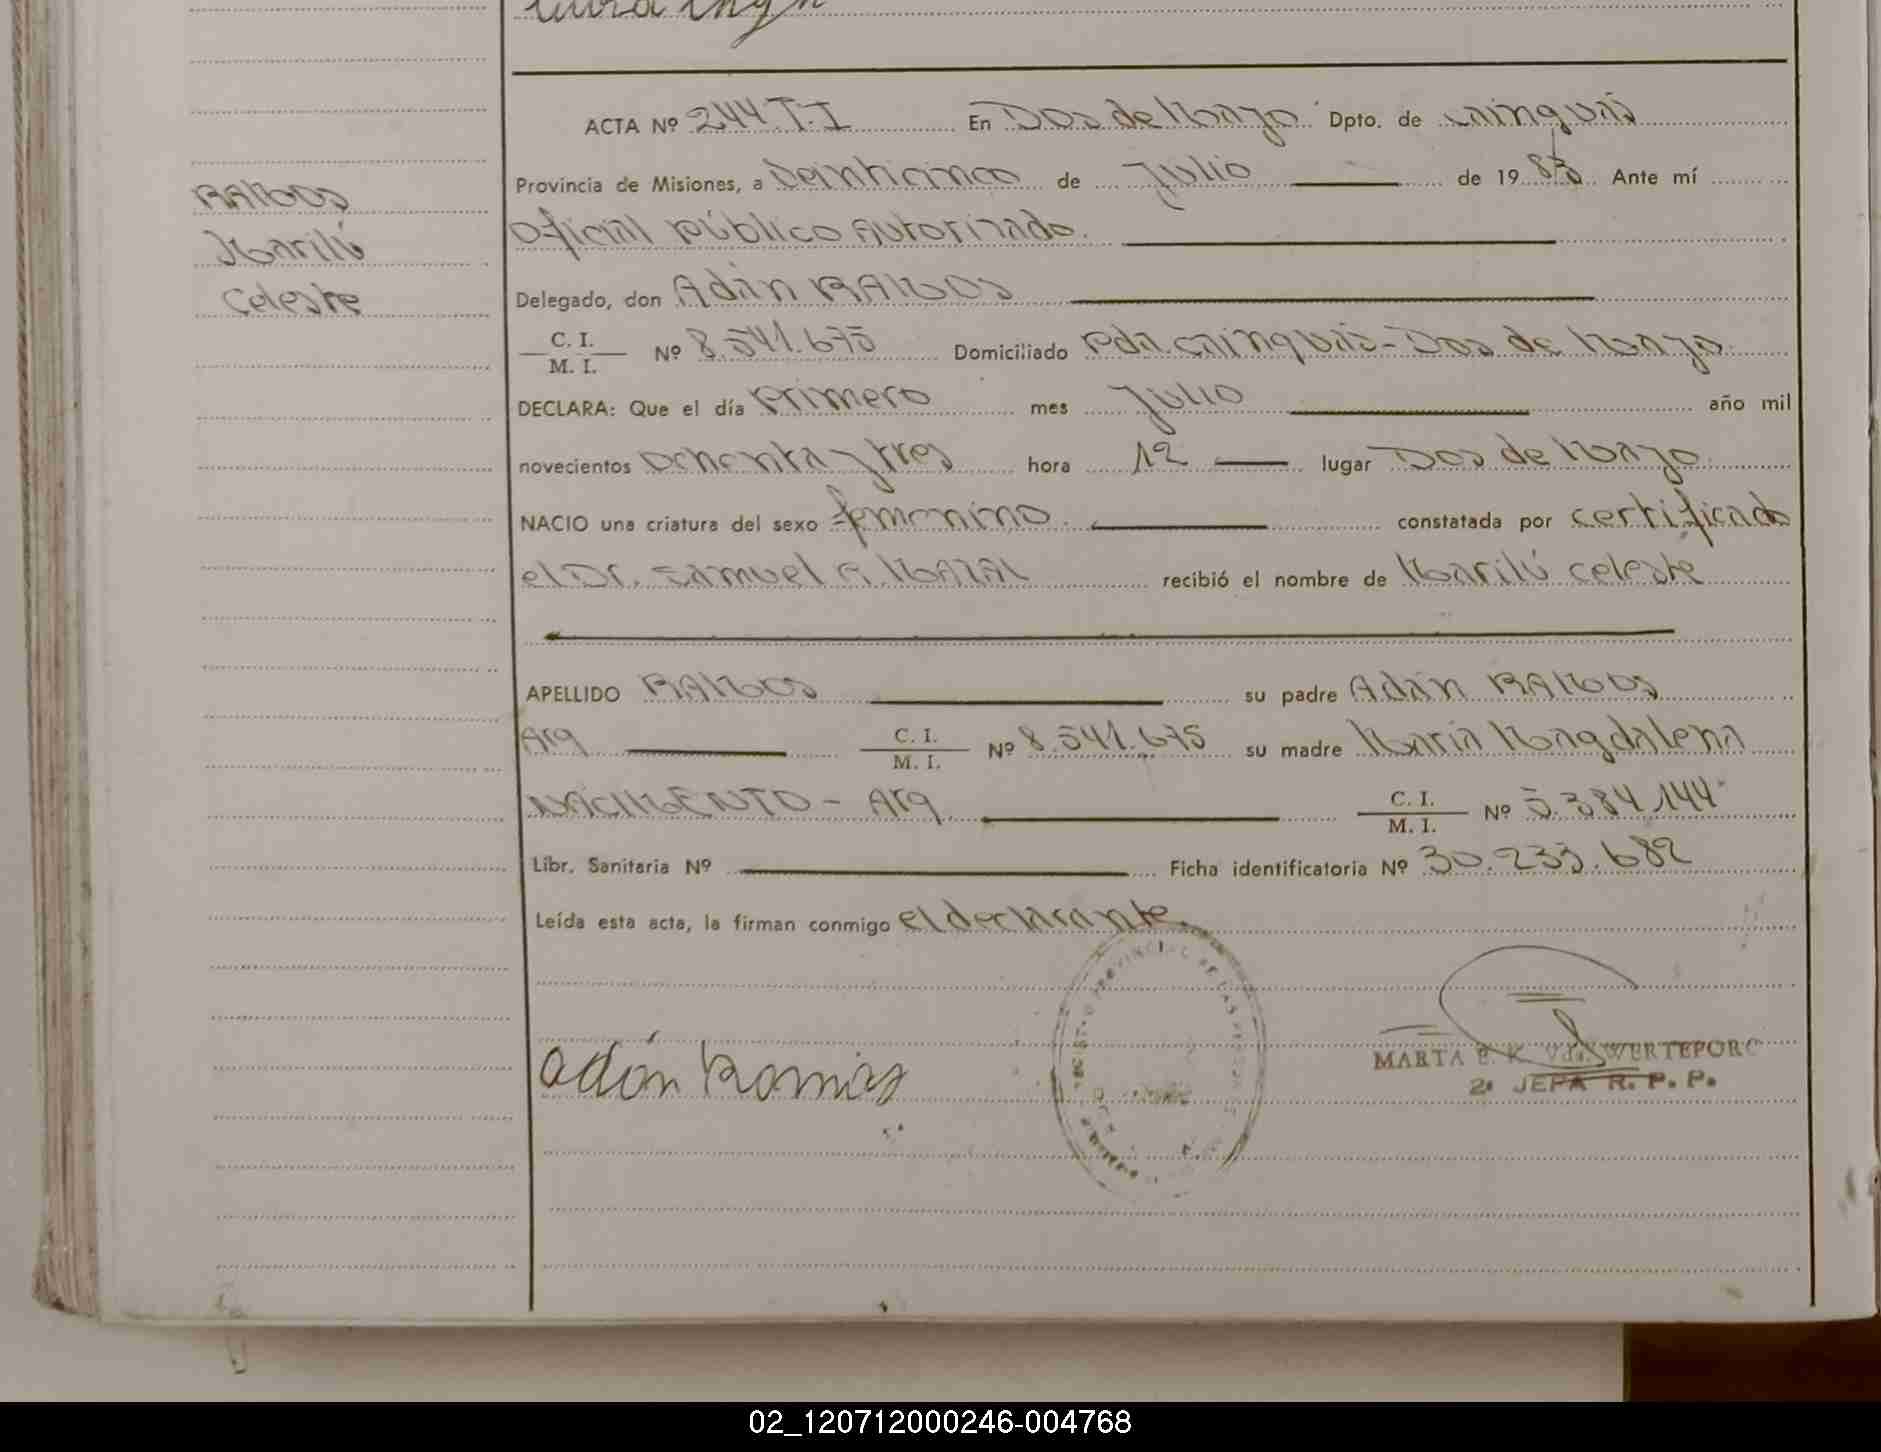 ACTA Nº 244 T.I En Dos de Mayo Dpto. de Cainguás
Provincia de Misiones, a veinticinco de Julio de 1983 Ante mí
Oficial público Autorizado.
RAMOS
Marilú
Celeste
Delegado, don Adán RAMOS
C. I.
M. I. Nº 8.541.675 Domiciliado Pda. Cainguás - Dos de Mayo
DECLARA: Que el día primero mes Julio año mil
novecientos ochenta y tres hora 12 lugar Dos de Mayo
NACIO una criatura del sexo femenino constatada por certificado
el Dr. Samuel A. MAZAL recibió el nombre de Marilú Celeste
APELLIDO RAMOS su padre Adán RAMOS
Arg C. I.
M. I. Nº 8.541.675 su madre María Magdalena
NACIMENTO - Arg C. I.
M. I. Nº 5.384.144
Libr. Sanitaria Nº Ficha identificatoria Nº 30.233.682
Leída esta acta, la firman conmigo el declarante.
Adán Ramos
MARTA E. K. Vda. WERTEPORC
2º JEFA R. P. P.
02_120712000246-004768